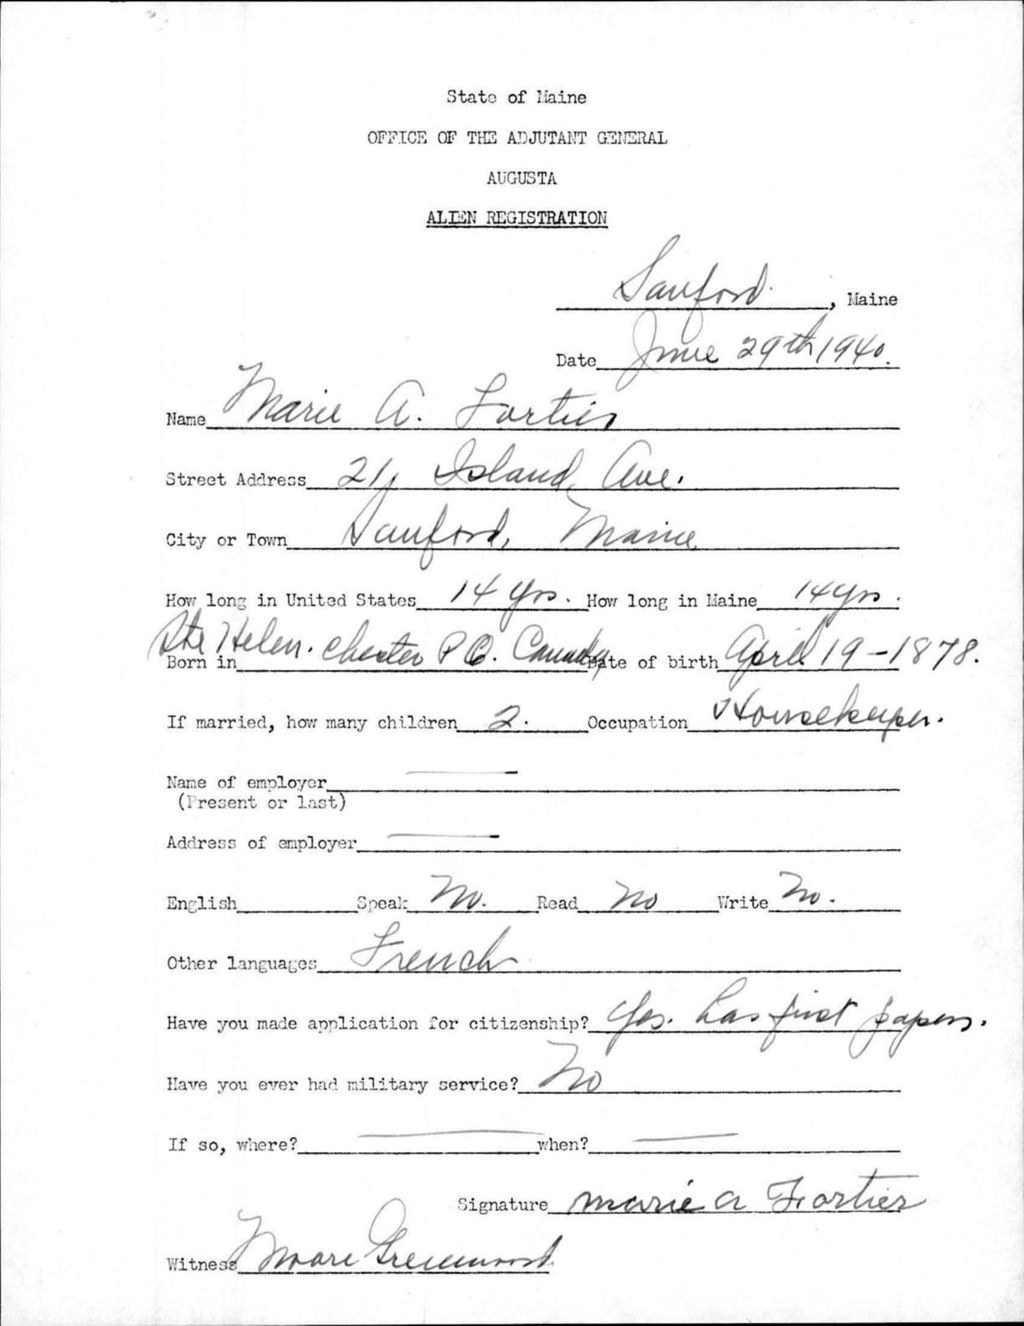 State of Maine
OFFICE OF THE ADJUTANT GENERAL
AUGUSTA
ALIEN REGISTRATION
Sanford, Maine
Date June 29th 1940.
Name Marie A. Fortier
Street Address 21, Island Ave.
City or Town Sanford, Maine
How long in United States 14 yrs. How long in Maine 14 yrs.
Born in Ste Helen. Chester P.Q. Canada Date of birth April 19-1878.
If married, how many children 2. Occupation Housekeeper.
Name of employer
(Present or last)
Address of employer
English Speak No. Read No Write No.
Other languages French
Have you made application for citizenship? Yes. has first papers.
Have you ever had military service? No
If so, where? when?
Signature Marie A Fortier
Witness